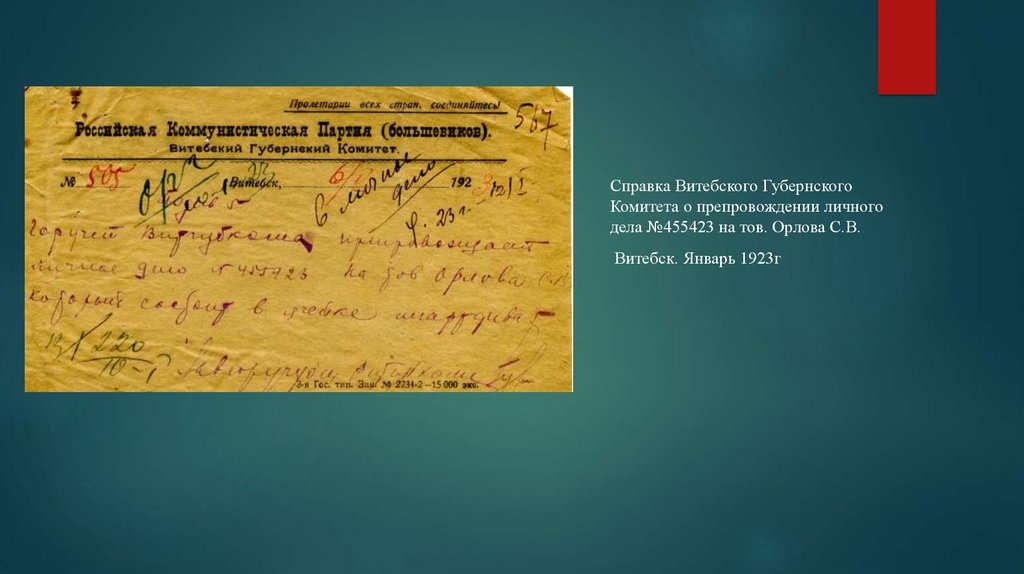 Пролетарии всех стран, соединяйтесь!
567
Российская Коммунистическая Партия (большевиков).
Витебский Губернский Комитет.
№ 505 Витебск, 6/I 1923
в личное
дело
23 г.
Горучет Витгубкома препровождает
личное дело № 455423 на тов Орлова С.В
который состоит в ячейке
220
10-I
3-я Гос. тип. Зак. № 2234-2—15 000 экс.
Справка Витебского Губернского
Комитета о препровождении личного
дела №455423 на тов. Орлова С.В.
Витебск. Январь 1923г